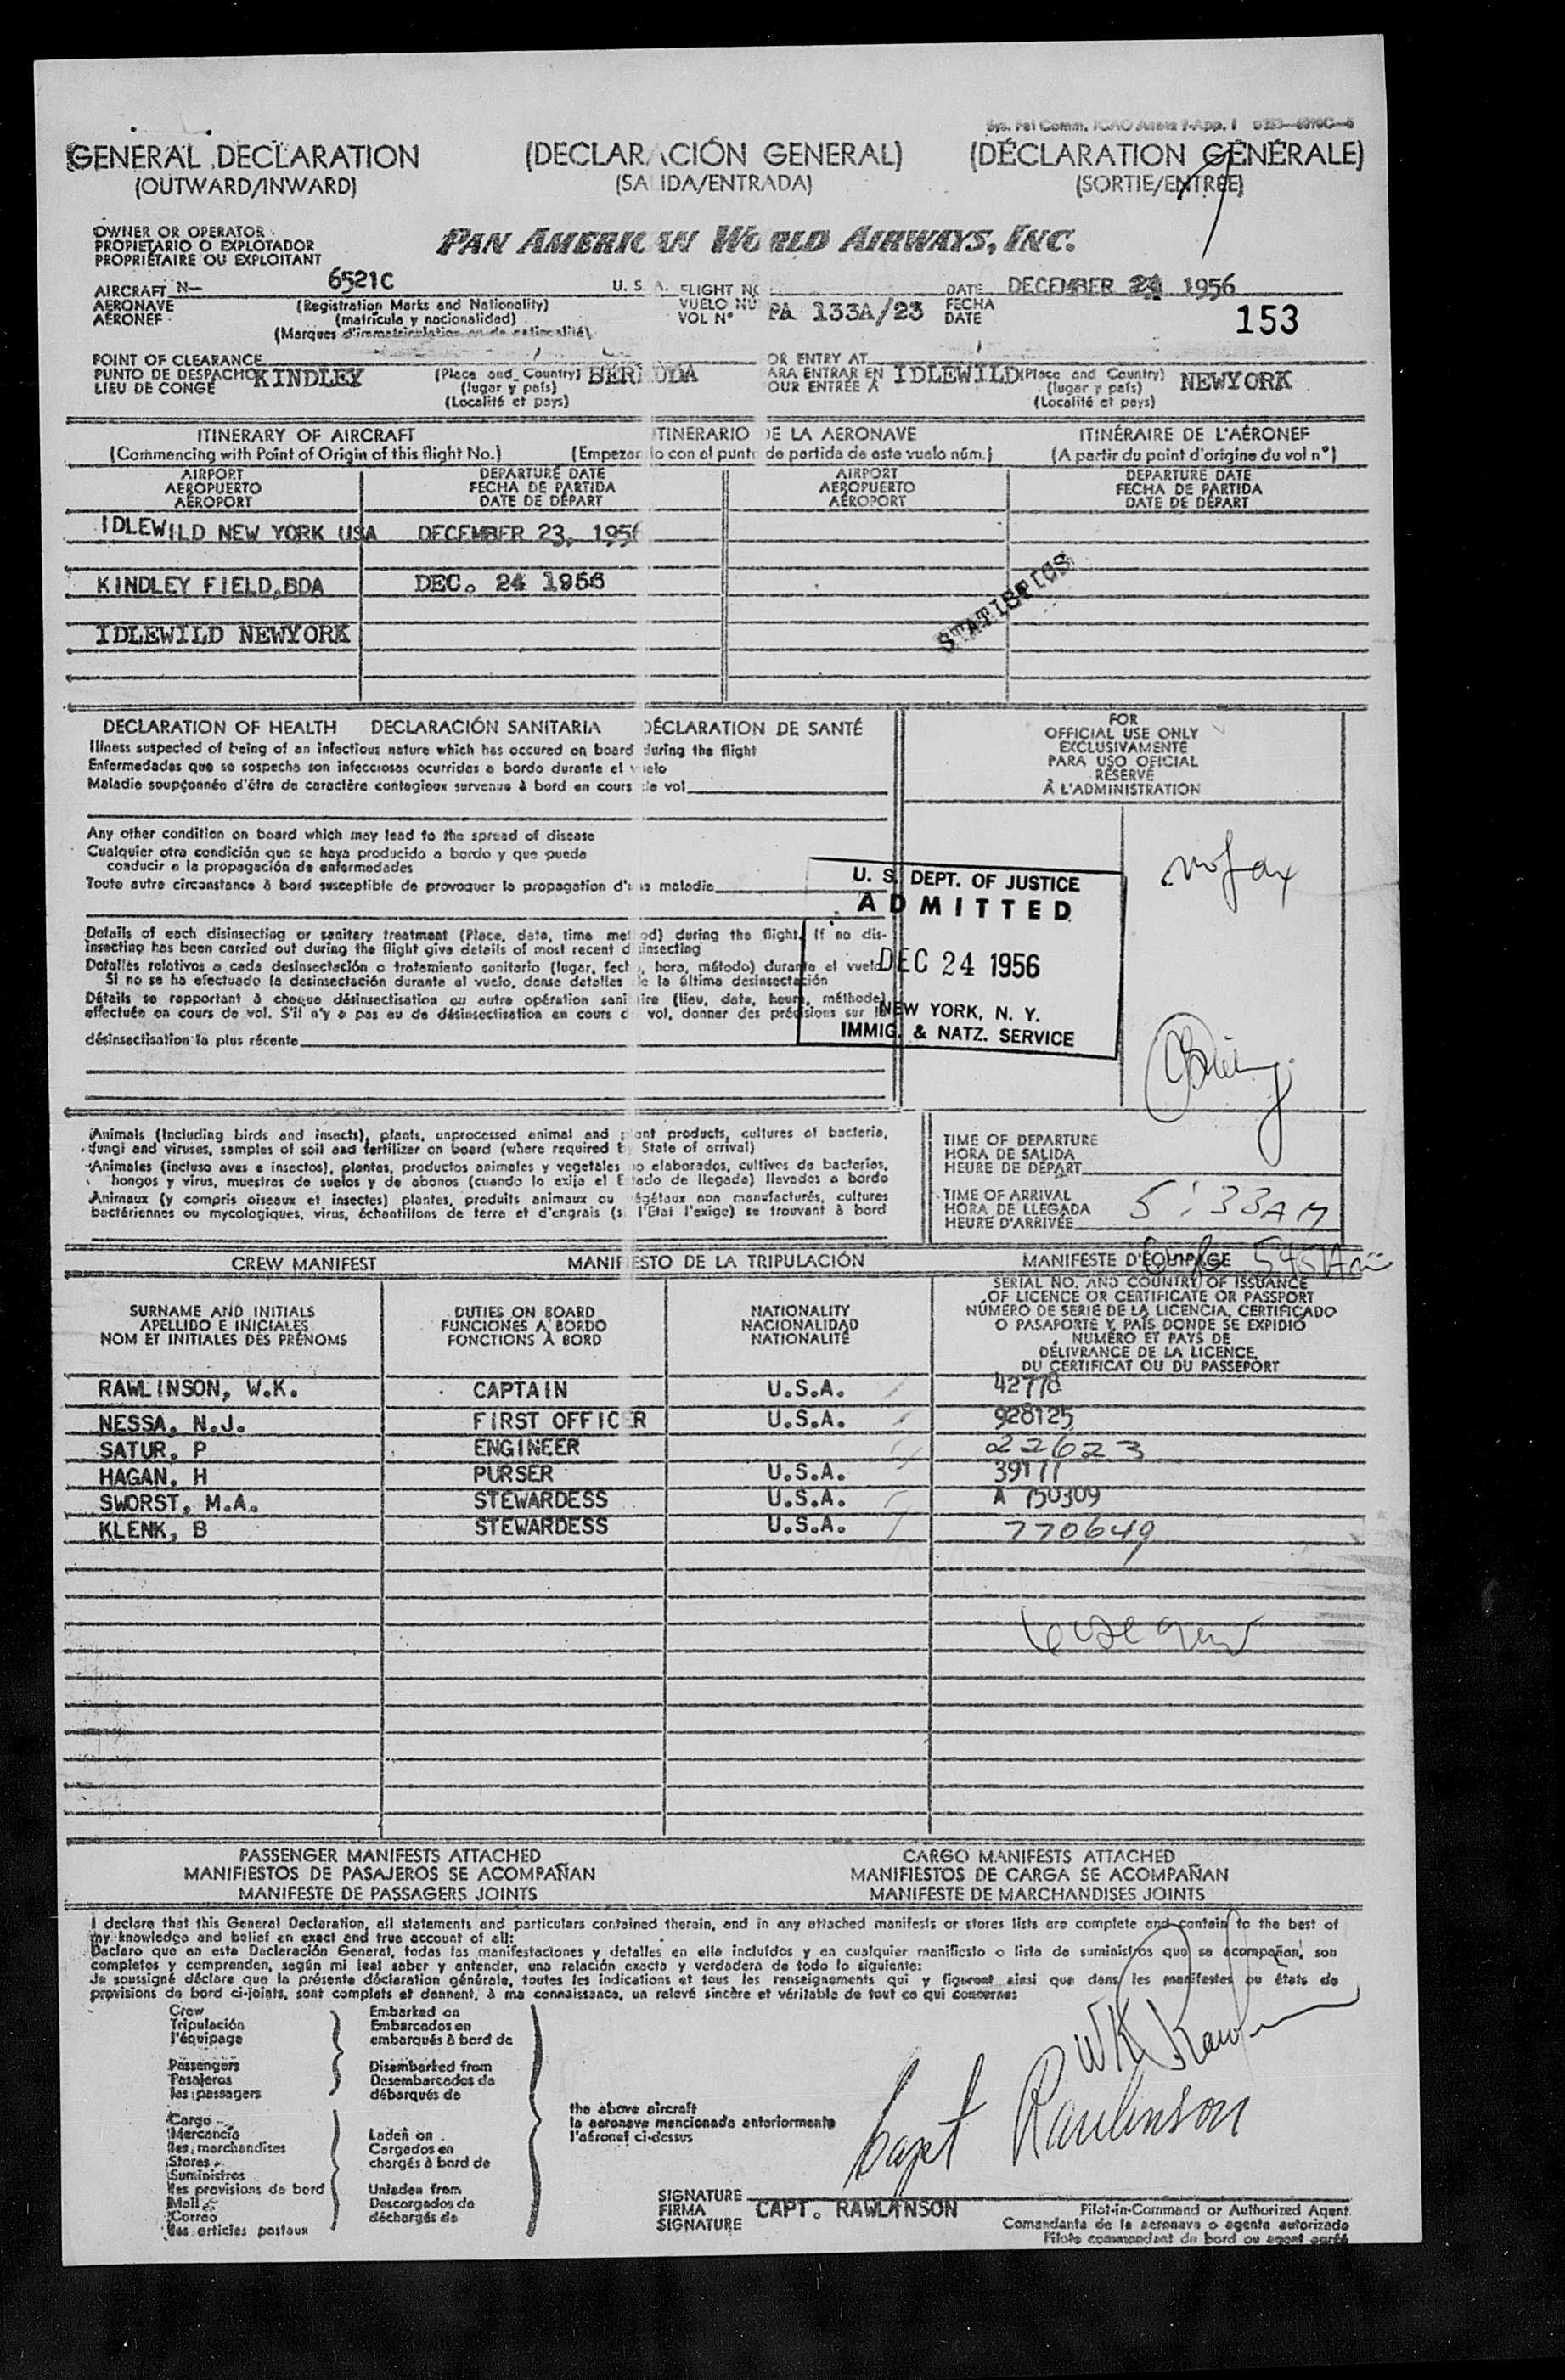 GENERAL DECLARATION (DECLARACIÓN GENERAL) (DÉCLARATION GÉNÉRALE)
(OUTWARD/INWARD) (SALIDA/ENTRADA) (SORTIE/ENTRÉE)
OWNER OR OPERATOR
PROPIETARIO O EXPLOTADOR
PROPRIÉTAIRE OU EXPLOITANT
PAN AMERICAN WORLD AIRWAYS, INC.
AIRCRAFT N- 6521C U. S. A. FLIGHT NO DATE DECEMBER 24 1956
AERONAVE (Registration Marks and Nationality) VUELO NÚ PA 133A/23 FECHA
AÉRONEF (matrícula y nacionalidad) VOL N° DATE 153
(Marques d'immatriculation ou de nationalité)
POINT OF CLEARANCE OR ENTRY AT
PUNTO DE DESPACHO KINDLEY (Place and Country) BERMUDA ARA ENTRAR EN IDLEWILD (Place and Country) NEWYORK
LIEU DE CONGÉ (lugar y país) OUR ENTRÉE À (lugar y país)
(Localité et pays) (Localité et pays)
ITINERARY OF AIRCRAFT ITINERARIO DE LA AERONAVE ITINÉRAIRE DE L'AÉRONEF
(Commencing with Point of Origin of this flight No.) (Empezando con el punto de partida de este vuelo núm.) (A partir du point d'origine du vol n°)
AIRPORT DEPARTURE DATE AIRPORT DEPARTURE DATE
AEROPUERTO FECHA DE PARTIDA AEROPUERTO FECHA DE PARTIDA
AÉROPORT DATE DE DÉPART AÉROPORT DATE DE DÉPART
IDLEWILD NEW YORK USA DECEMBER 23, 1956
KINDLEY FIELD, BDA DEC. 24 1956
STATISTICS
IDLEWILD NEWYORK
DECLARATION OF HEALTH DECLARACIÓN SANITARIA DÉCLARATION DE SANTÉ
Illness suspected of being of an infectious nature which has occured on board during the flight
Enfermedades que se sospecha son infecciosas ocurridas a bordo durante el vuelo
Maladie soupçonnée d'être de caractère contagieux survenue à bord en cours de vol
FOR
OFFICIAL USE ONLY
EXCLUSIVAMENTE
PARA USO OFICIAL
RÉSERVÉ
À L'ADMINISTRATION
Any other condition on board which may lead to the spread of disease
Cualquier otra condición que se haya producido a bordo y que pueda
conducir a la propagación de enfermedades
Toute autre circonstance à bord susceptible de provoquer la propagation d'une maladie
U. S. DEPT. OF JUSTICE
ADMITTED
DEC 24 1956
NEW YORK, N. Y.
IMMIG. & NATZ. SERVICE
Details of each disinsecting or sanitary treatment (Place, date, time method) during the flight. If no dis-
insecting has been carried out during the flight give details of most recent disinsecting
Detalles relativos a cada desinsectación o tratamiento sanitario (lugar, fecha, hora, método) durante el vuelo
Si no se ha efectuado la desinsectación durante el vuelo, dense detalles de la última desinsectación
Détails se rapportant à chaque désinsectisation ou autre opération sanitaire (lieu, date, heure, méthode)
effectuée en cours de vol. S'il n'y a pas eu de désinsectisation en cours de vol, donner des précisions sur la
désinsectisation la plus récente
Animals (Including birds and insects), plants, unprocessed animal and plant products, cultures of bacteria,
fungi and viruses, samples of soil and fertilizer on board (where required by State of arrival)
Animales (incluso aves e insectos), plantas, productos animales y vegetales no elaborados, cultivos de bacterias,
hongos y virus, muestras de suelos y de abonos (cuando lo exija el Estado de llegada) llevados a bordo
Animaux (y compris oiseaux et insectes) plantes, produits animaux ou végétaux non manufacturés, cultures
bactériennes ou mycologiques, virus, échantillons de terre et d'engrais (si l'Etat l'exige) se trouvant à bord
TIME OF DEPARTURE
HORA DE SALIDA
HEURE DE DÉPART
TIME OF ARRIVAL
HORA DE LLEGADA 5:33AM
HEURE D'ARRIVÉE
CREW MANIFEST MANIFIESTO DE LA TRIPULACIÓN MANIFESTE D'ÉQUIPAGE
SURNAME AND INITIALS DUTIES ON BOARD NATIONALITY
APELLIDO E INICIALES FUNCIONES A BORDO NACIONALIDAD
NOM ET INITIALES DES PRÉNOMS FONCTIONS À BORD NATIONALITÉ
SERIAL NO. AND COUNTRY OF ISSUANCE
OF LICENCE OR CERTIFICATE OR PASSPORT
NÚMERO DE SERIE DE LA LICENCIA, CERTIFICADO
O PASAPORTE Y PAÍS DONDE SE EXPIDIÓ
NUMÉRO ET PAYS DE
DÉLIVRANCE DE LA LICENCE,
DU CERTIFICAT OU DU PASSEPORT
RAWLINSON, W.K. CAPTAIN U.S.A. 42778
NESSA, N.J. FIRST OFFICER U.S.A. 928125
SATUR, P ENGINEER 22623
HAGAN, H PURSER U.S.A. 39177
SWORST, M.A. STEWARDESS U.S.A. A 150309
KLENK, B STEWARDESS U.S.A. 770649
PASSENGER MANIFESTS ATTACHED CARGO MANIFESTS ATTACHED
MANIFIESTOS DE PASAJEROS SE ACOMPAÑAN MANIFIESTOS DE CARGA SE ACOMPAÑAN
MANIFESTE DE PASSAGERS JOINTS MANIFESTE DE MARCHANDISES JOINTS
I declare that this General Declaration, all statements and particulars contained therein, and in any attached manifests or stores lists are complete and contain to the best of
my knowledge and belief an exact and true account of all:
Declaro que en esta Declaración General, todas las manifestaciones y detalles en ella incluídos y en cualquier manifiesto o lista de suministros que se acompañan, son
completos y comprenden, según mi leal saber y entender, una relación exacta y verdadera de todo lo siguiente:
Je soussigné déclare que la présente déclaration générale, toutes les indications et tous les renseignements qui y figurent ainsi que dans les manifestes ou états de
provisions de bord ci-joints, sont complets et donnent, à ma connaissance, un relevé sincère et véritable de tout ce qui concerne:
Crew Embarked on
Tripulación Embarcados en
l'équipage embarqués à bord de
Passengers Disembarked from
Pasajeros Desembarcados de
les passagers débarqués de
the above aircraft
la aeronave mencionada anteriormente
l'aéronef ci-dessus
Cargo
Mercancía Laden on
les marchandises Cargados en
Stores chargés à bord de
Suministros
les provisions de bord Unladen from
Mail Descargados de
Correo déchargés de
les articles postaux
WK Rawlinson
Capt Rawlinson
SIGNATURE
FIRMA CAPT. RAWLINSON
SIGNATURE
Pilot-in-Command or Authorized Agent
Comandante de la aeronave o agente autorizado
Pilote commandant de bord ou agent agréé